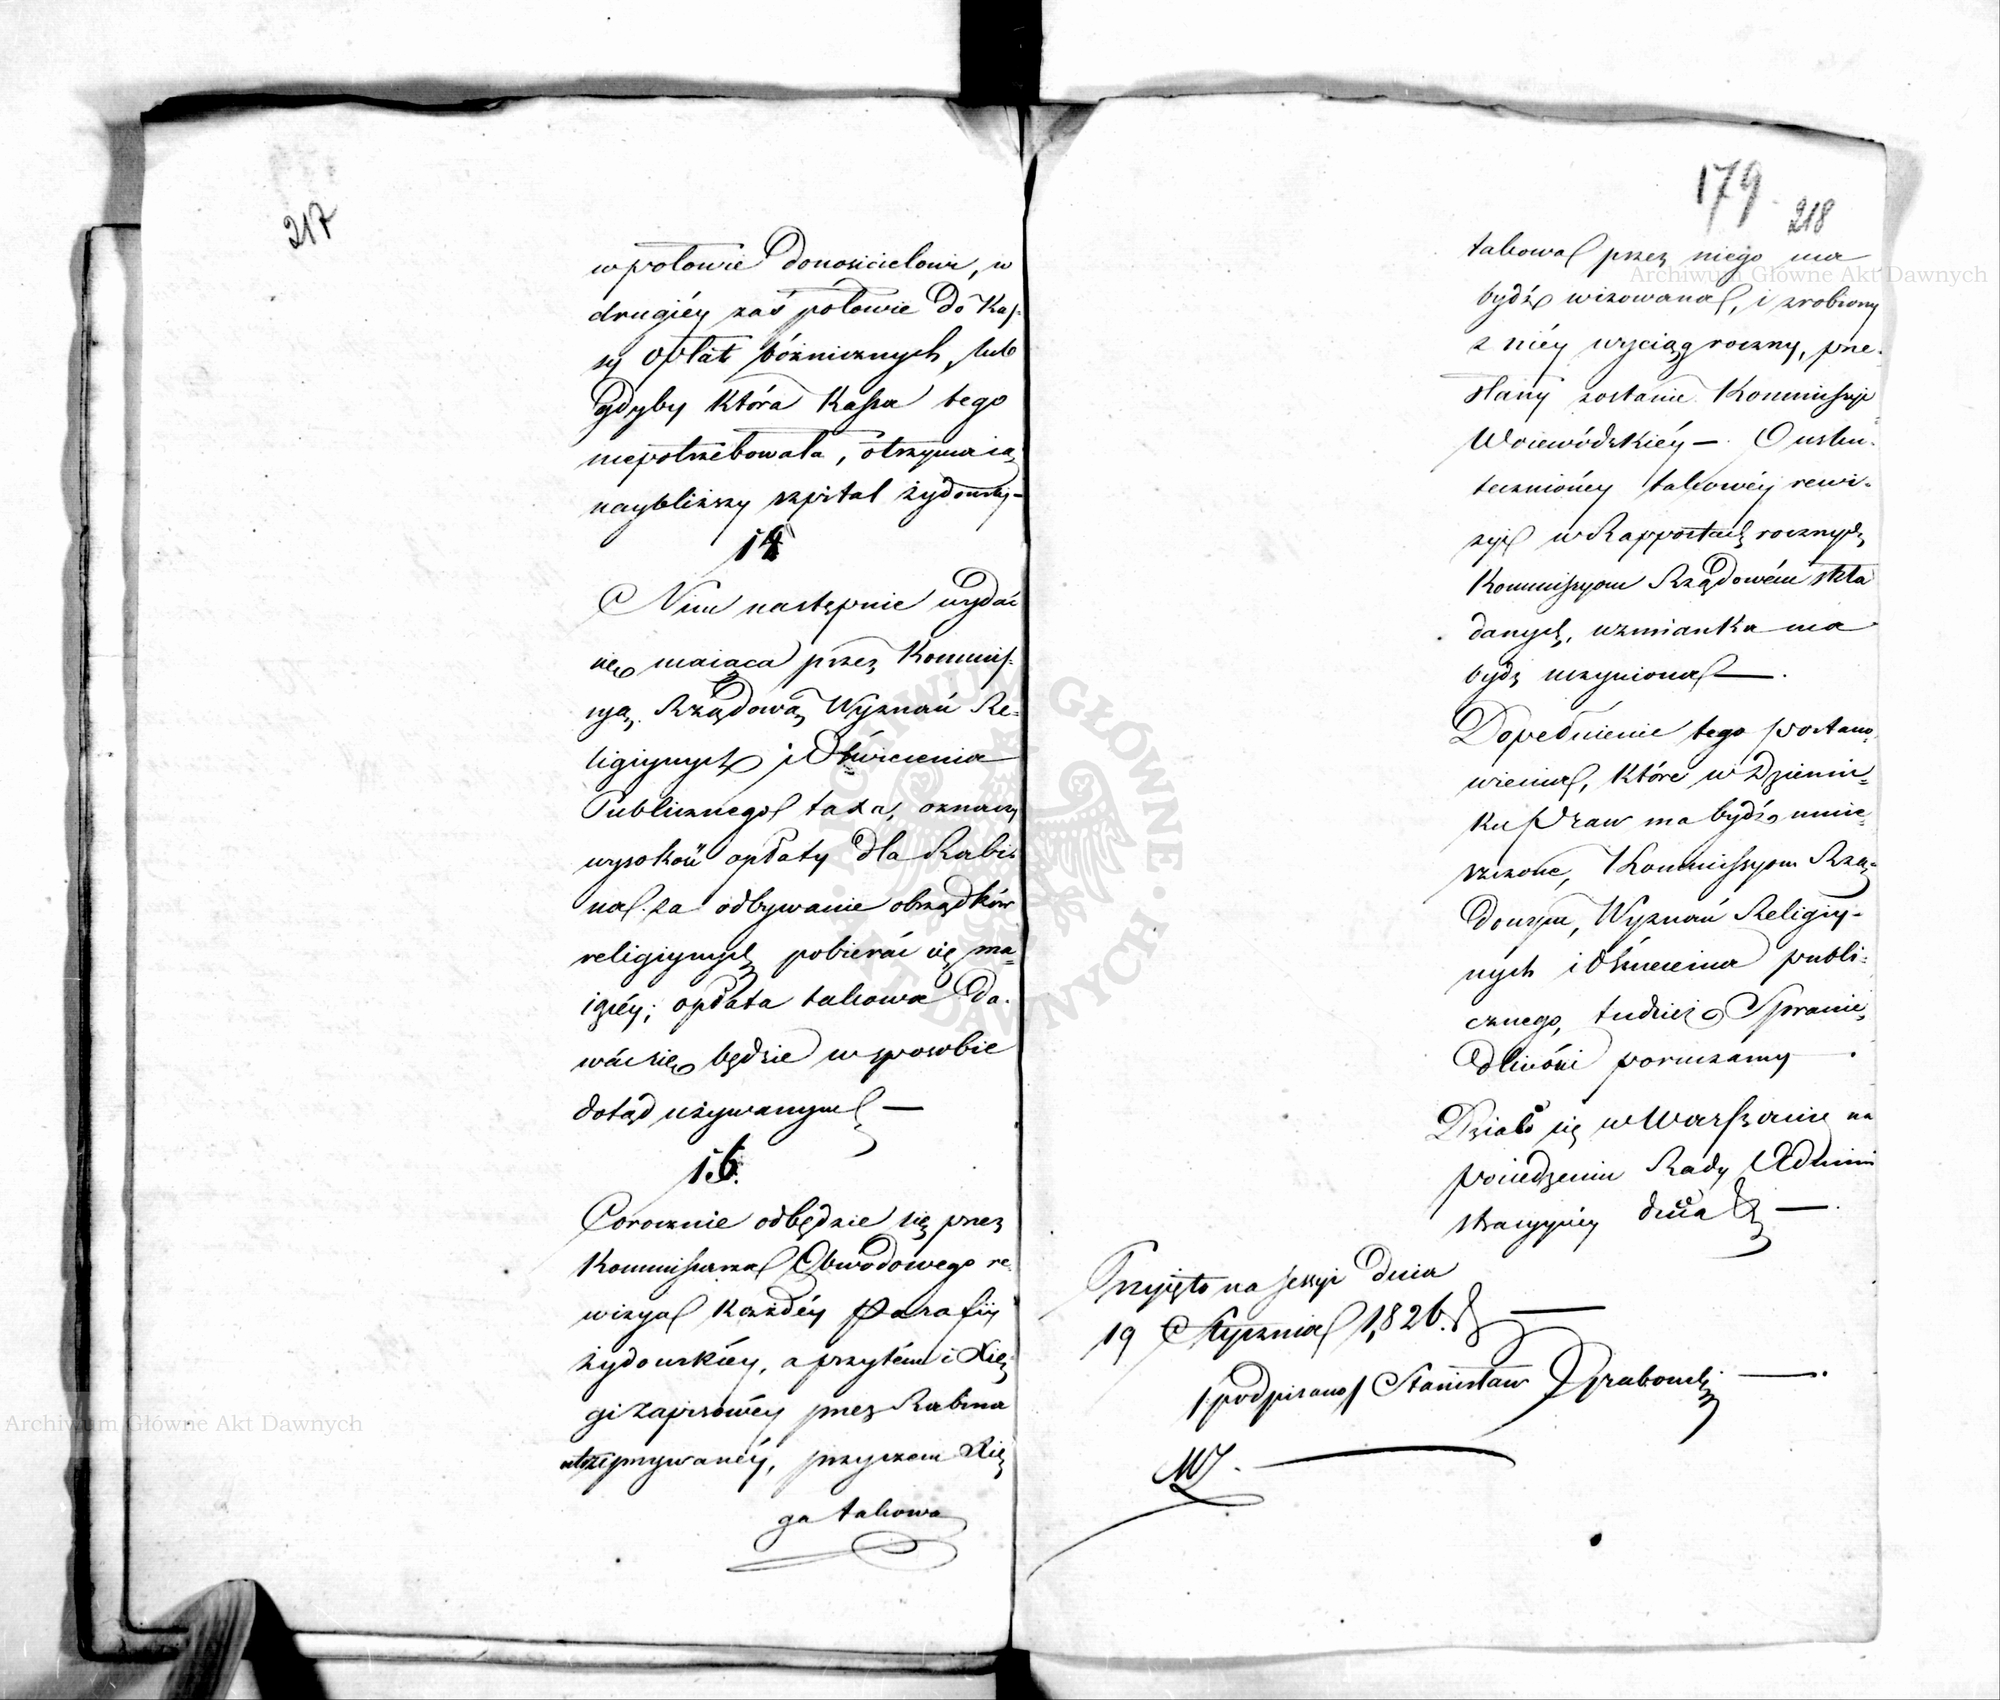 217
w połowie donosicielowi, w
drugiéy zaś połowie do Kas-
sy opłat bóżnicznych, lub
gdyby która Kassa tego
niepotrzebowała, otrzyma ią
naybliższy szpital żydowski —
14
Nim następnie wydać
się maiąca przez Kommis-
syą Rządową Wyznań Re=
ligiynych i Oświecenia
Publicznego taxa, oznaczy
wysokość opłaty dla Rabi=
na za odbywanie obrządków
religiynych pobierać się ma=
iącéy; opłata takowa da-
wać się będzie w sposobie
dotąd używanym —
15.
Corocznie odbędzie się przez
Kommissarza Obwodowego re-
wizya każdéy Parafii
żydowskiéy, a przytém i Xię-
gi Zapisowéy przez Rabina
utrzymywanéy, przyczem Xię
ga takowa
179. 218
takowa przez niego ma
bydź wizowana, i zrobiony
z niéy wyciąg roczny, prze-
słany zostanie Kommissyi
Woiewódzkiéy —. O usku-
tecznionéy takowéy rewi-
zyi w Rapportach rocznych
Kommissyom Rządowém skła
danych, wzmianka ma
bydź uczyniona —.
Dopełnienie tego postano-
wienia, które w Dzienni=
ku Praw ma bydź umie=
szczone, Kommissyom Rzą=
dowym, Wyznań Religiy-
nych i Oświecenia publi-
cznego, tudzież Sprawie-
dliwości poruczamy —.
Działo się w Warszawie na
posiedzeniu Rady Admini
stracyyney dnia —.
Przyięto na sessyi dnia
19 Stycznia 1826. —
/podpisano/ Stanisław Grabowski —.
Archiwum Główne Akt Dawnych
Archiwum Główne Akt Dawnych
ARCHIWUM GŁÓWNE · AKT DAWNYCH ·